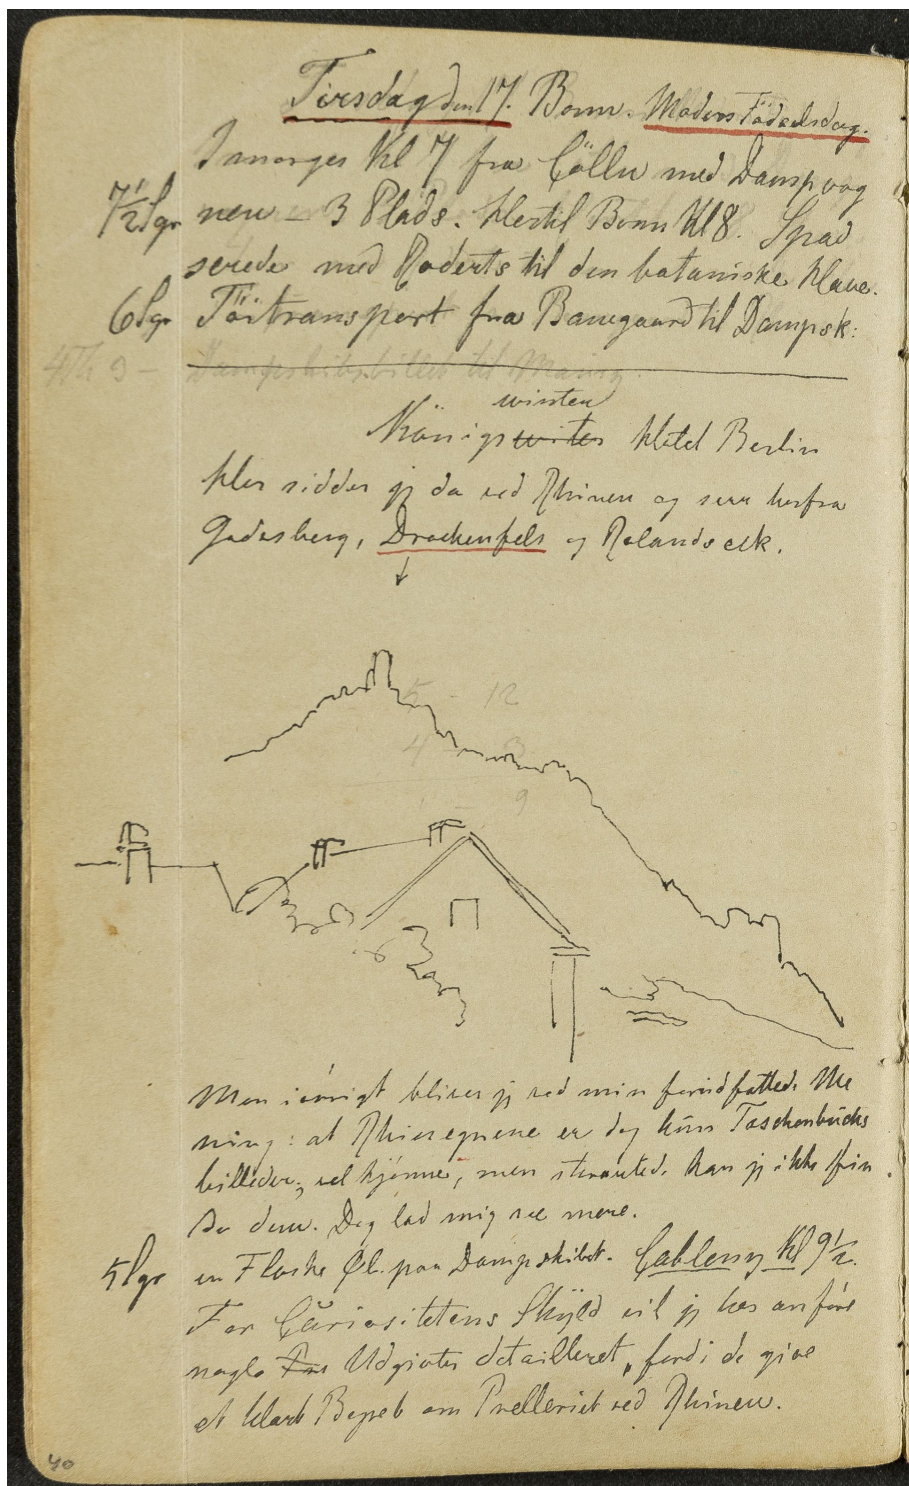 Tirsdag den 17. Bonn. Moders Födselsdag.
Imorges Kl 7 fra Cölln med Dampvog
7½ Sgr nen – 3 Plads. Hertil Bonn Kl 8. Spad
serede med Roderts til den botaniske Have.
6 Sgr Töitransport fra Banegaard til Dampsk:
4 Th 9 – Dampskibsbillet til Mainz
winten
Königswinter Hotel Berlin
Her sidder jeg da ved Rhinen og seer herfra
Godesberg, Drachenfels og Rolandseck.
5 – 12
4 3
9
Men iövrigt bliver jeg ved min forudfattede Me
ning: at Rhinegnene er dog kun Taschenbuchs
billeder; vel kjönne, men storartede kan jeg ikke fin
de dem. Dog lad mig see mere.
5 Sgr en Flaske Øl paa Dampskibet. Coblenz Kl 9½.
For Curiositetens Skyld vil jeg her anföre
nogle Udgivter detailleret, fordi de give
et klart Begreb om Prelleriet ved Rhinen.
40